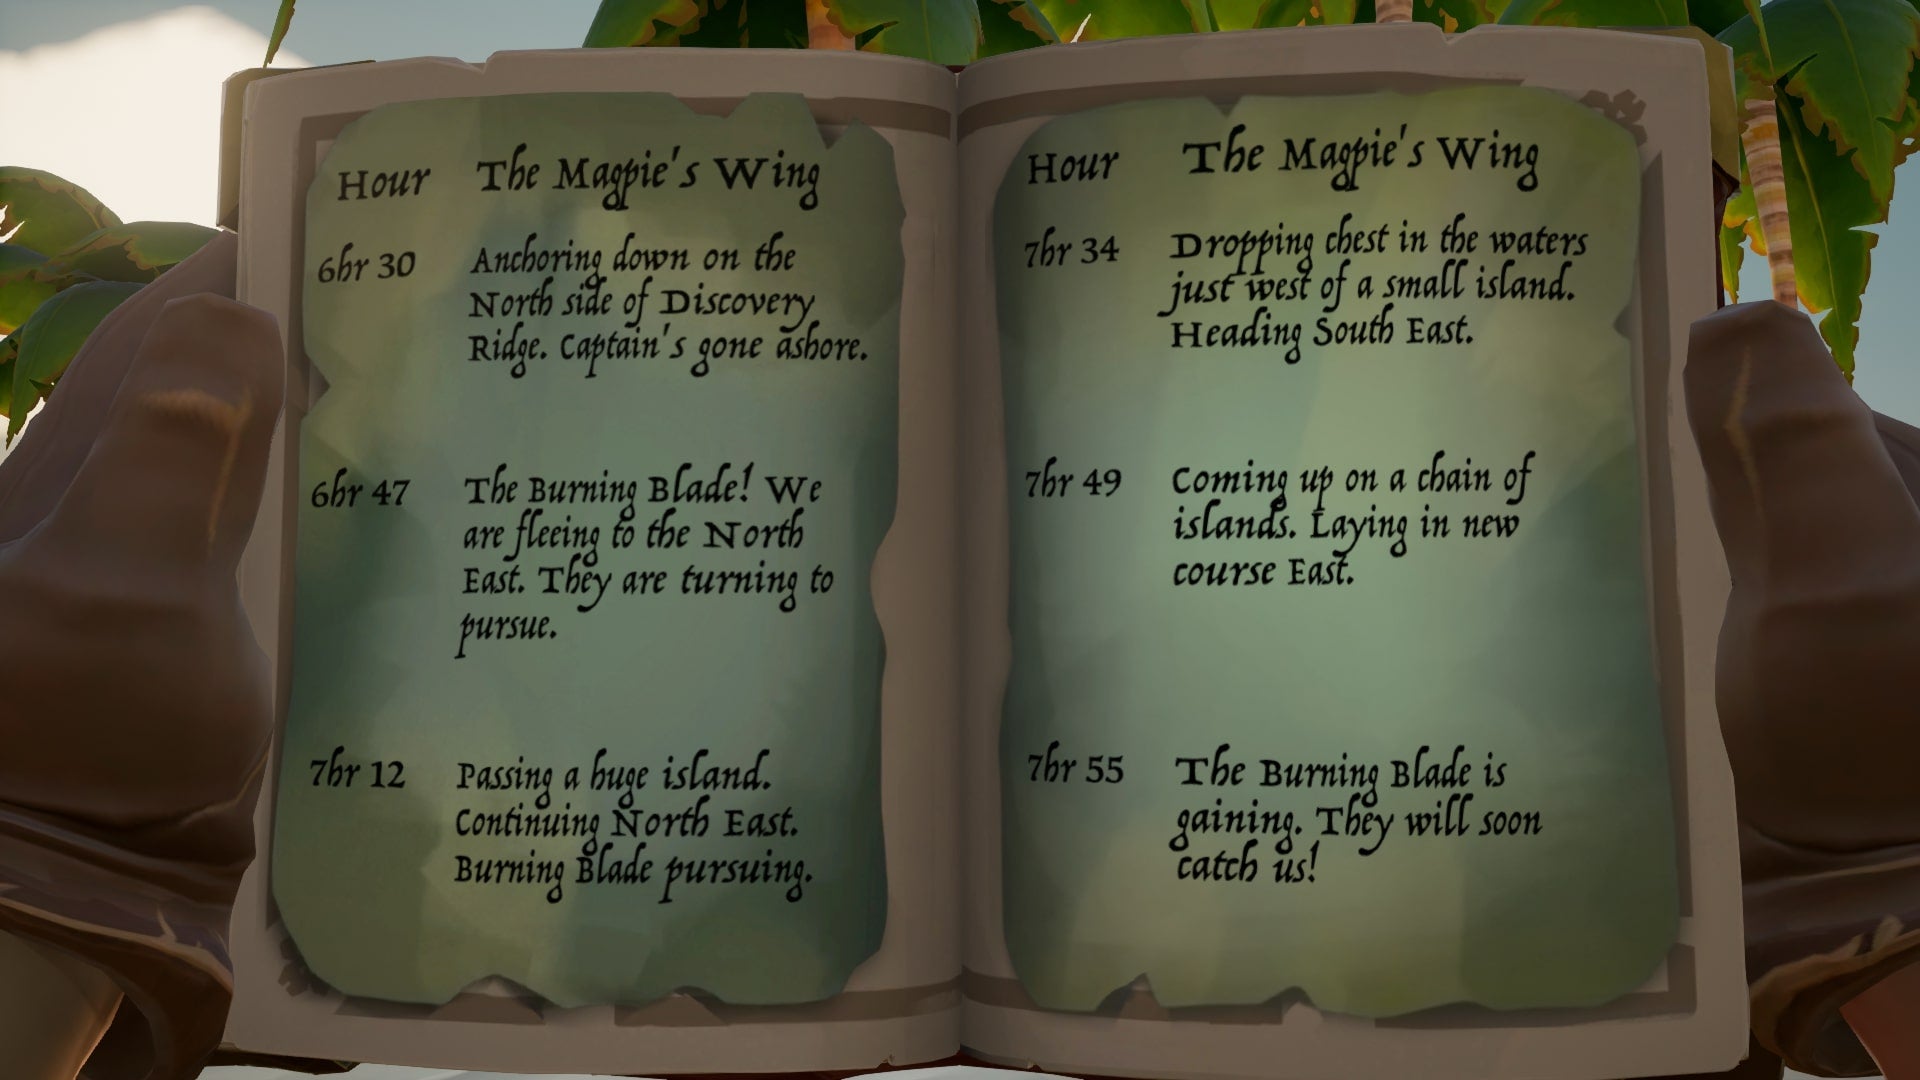 Hour The Magpie's Wing
6hr 30 Anchoring down on the
North side of Discovery
Ridge. Captain's gone ashore.
6hr 47 The Burning Blade! We
are fleeing to the North
East. They are turning to
pursue.
7hr 12 Passing a huge island.
Continuing North East.
Burning Blade pursuing.
Hour The Magpie's Wing
7hr 34 Dropping chest in the waters
just west of a small island.
Heading South East.
7hr 49 Coming up on a chain of
islands. Laying in new
course East.
7hr 55 The Burning Blade is
gaining. They will soon
catch us!